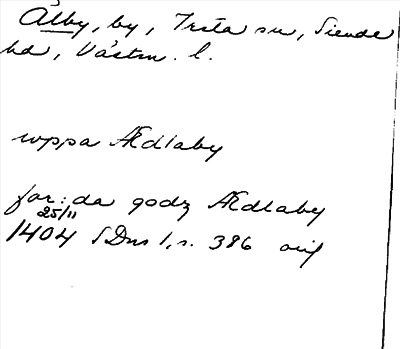 Älby, by, Irsta sn, Siende
hd, Västm. l.
uppa Ædlaby
for:da godz Ædlaby
25/11
1404 SDns 1, s. 386 orig